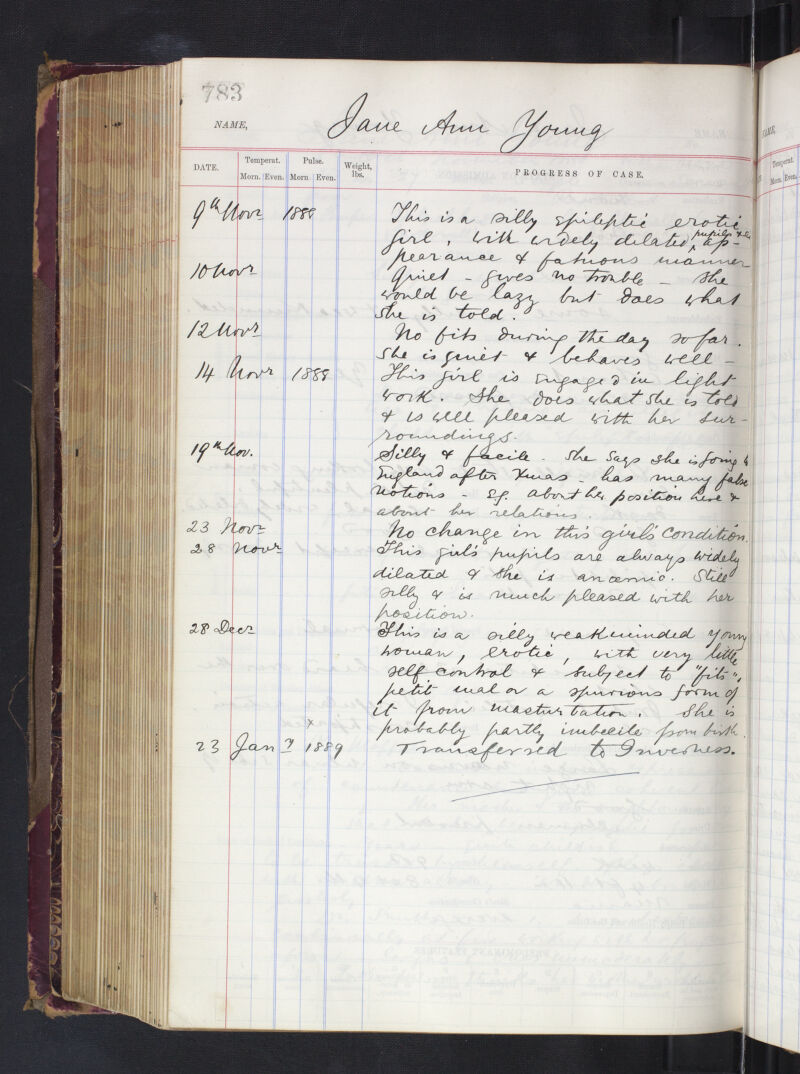 783
NAME,
Jane Ann Young
DATE.
Temperat.
Morn. Even.
Pulse.
Morn Even.
Weight, lbs.
PROGRESS OF CASE.
9th Novr 1888 This is a silly epileptic erotic
girl, with widely dilated ^pupils & ap-
pearance & fatuous manner
10 Novr Quiet - gives no trouble - She
would be lazy but does what
she is told.
12 Novr No fits during the day so far.
She is quiet & behaves well -
14 Novr 1888 This girl is engaged in light
work. She does what she is told
& is well pleased with her sur-
roundings.
19th Nov. Silly & facile - She says she is going to
England after Xmas - has many false
notions - eg. about her position here &
about her relations.
23 Novr No change in this girl's condition.
28 Novr This girl's pupils are always widely
dilated & she is anaemic. Still
silly & is much pleased with her
position.
28 Decr This is a silly weakminded young
woman, erotic, with very little
self control & subject to "fits",
petit mal or a spurious form of
it from masturbation. She is
probably partly imbecile from birth.
x
23 Jany 1889 Transferred to Inverness.
Temperat.
Morn. Even.